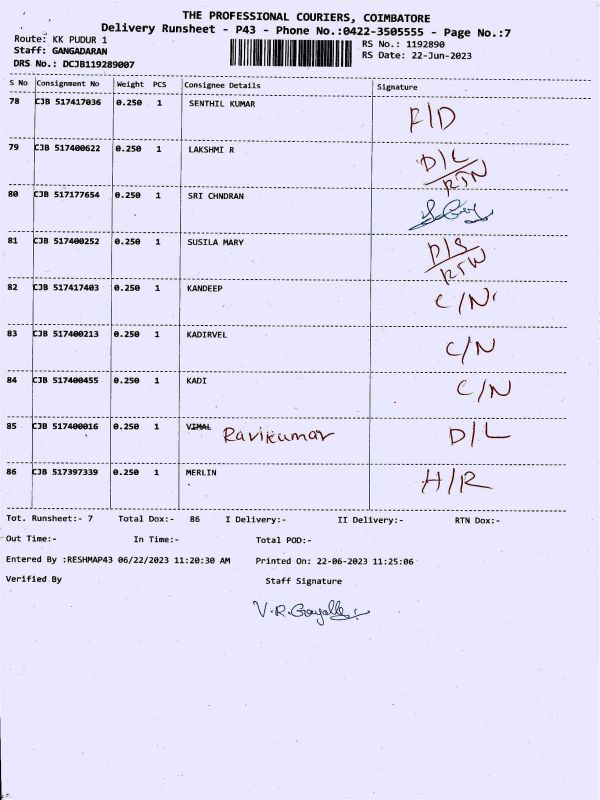 THE PROFESSIONAL COURIERS, COIMBATORE
Delivery Runsheet - P43 - Phone No.:0422-3505555 - Page No.:7
Route: KK PUDUR 1
RS No.: 1192890
Staff: GANGADARAN
RS Date: 22-Jun-2023
DRS No.: DCJB119289007
S No Consignment No Weight PCS Consignee Details Signature
78 CJB 517417036 0.250 1 SENTHIL KUMAR F/D
79 CJB 517400622 0.250 1 LAKSHMI R D/L
RTN
80 CJB 517177654 0.250 1 SRI CHNDRAN
81 CJB 517400252 0.250 1 SUSILA MARY D/S
RTN
82 CJB 517417403 0.250 1 KANDEEP C/N
83 CJB 517400213 0.250 1 KADIRVEL C/N
84 CJB 517400455 0.250 1 KADI C/N
85 CJB 517400016 0.250 1 VIMAL Ravikumar D/L
86 CJB 517397339 0.250 1 MERLIN H/R
Tot. Runsheet:- 7 Total Dox:- 86 I Delivery:- II Delivery:- RTN Dox:-
Out Time:- In Time:- Total POD:-
Entered By :RESHMAP43 06/22/2023 11:20:30 AM Printed On: 22-06-2023 11:25:06
Verified By Staff Signature